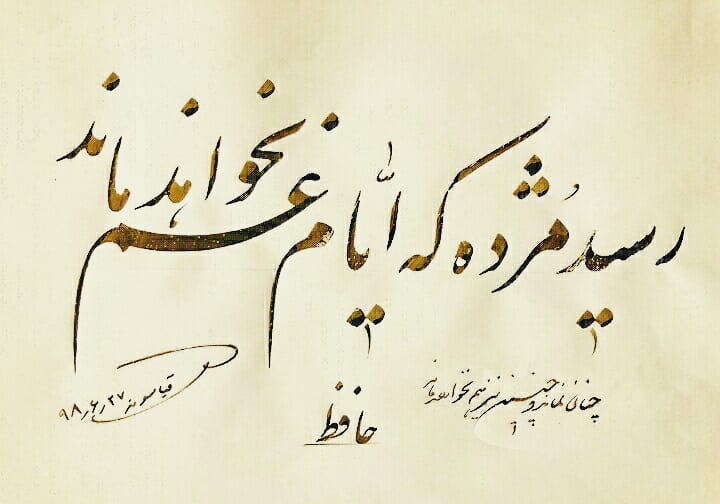 رسید مُژده که ایّام غم نخواهد ماند
چنان نماند و چنین نیز هم نخواهد ماند
حافظ
۹۸٫۶٫۲۷